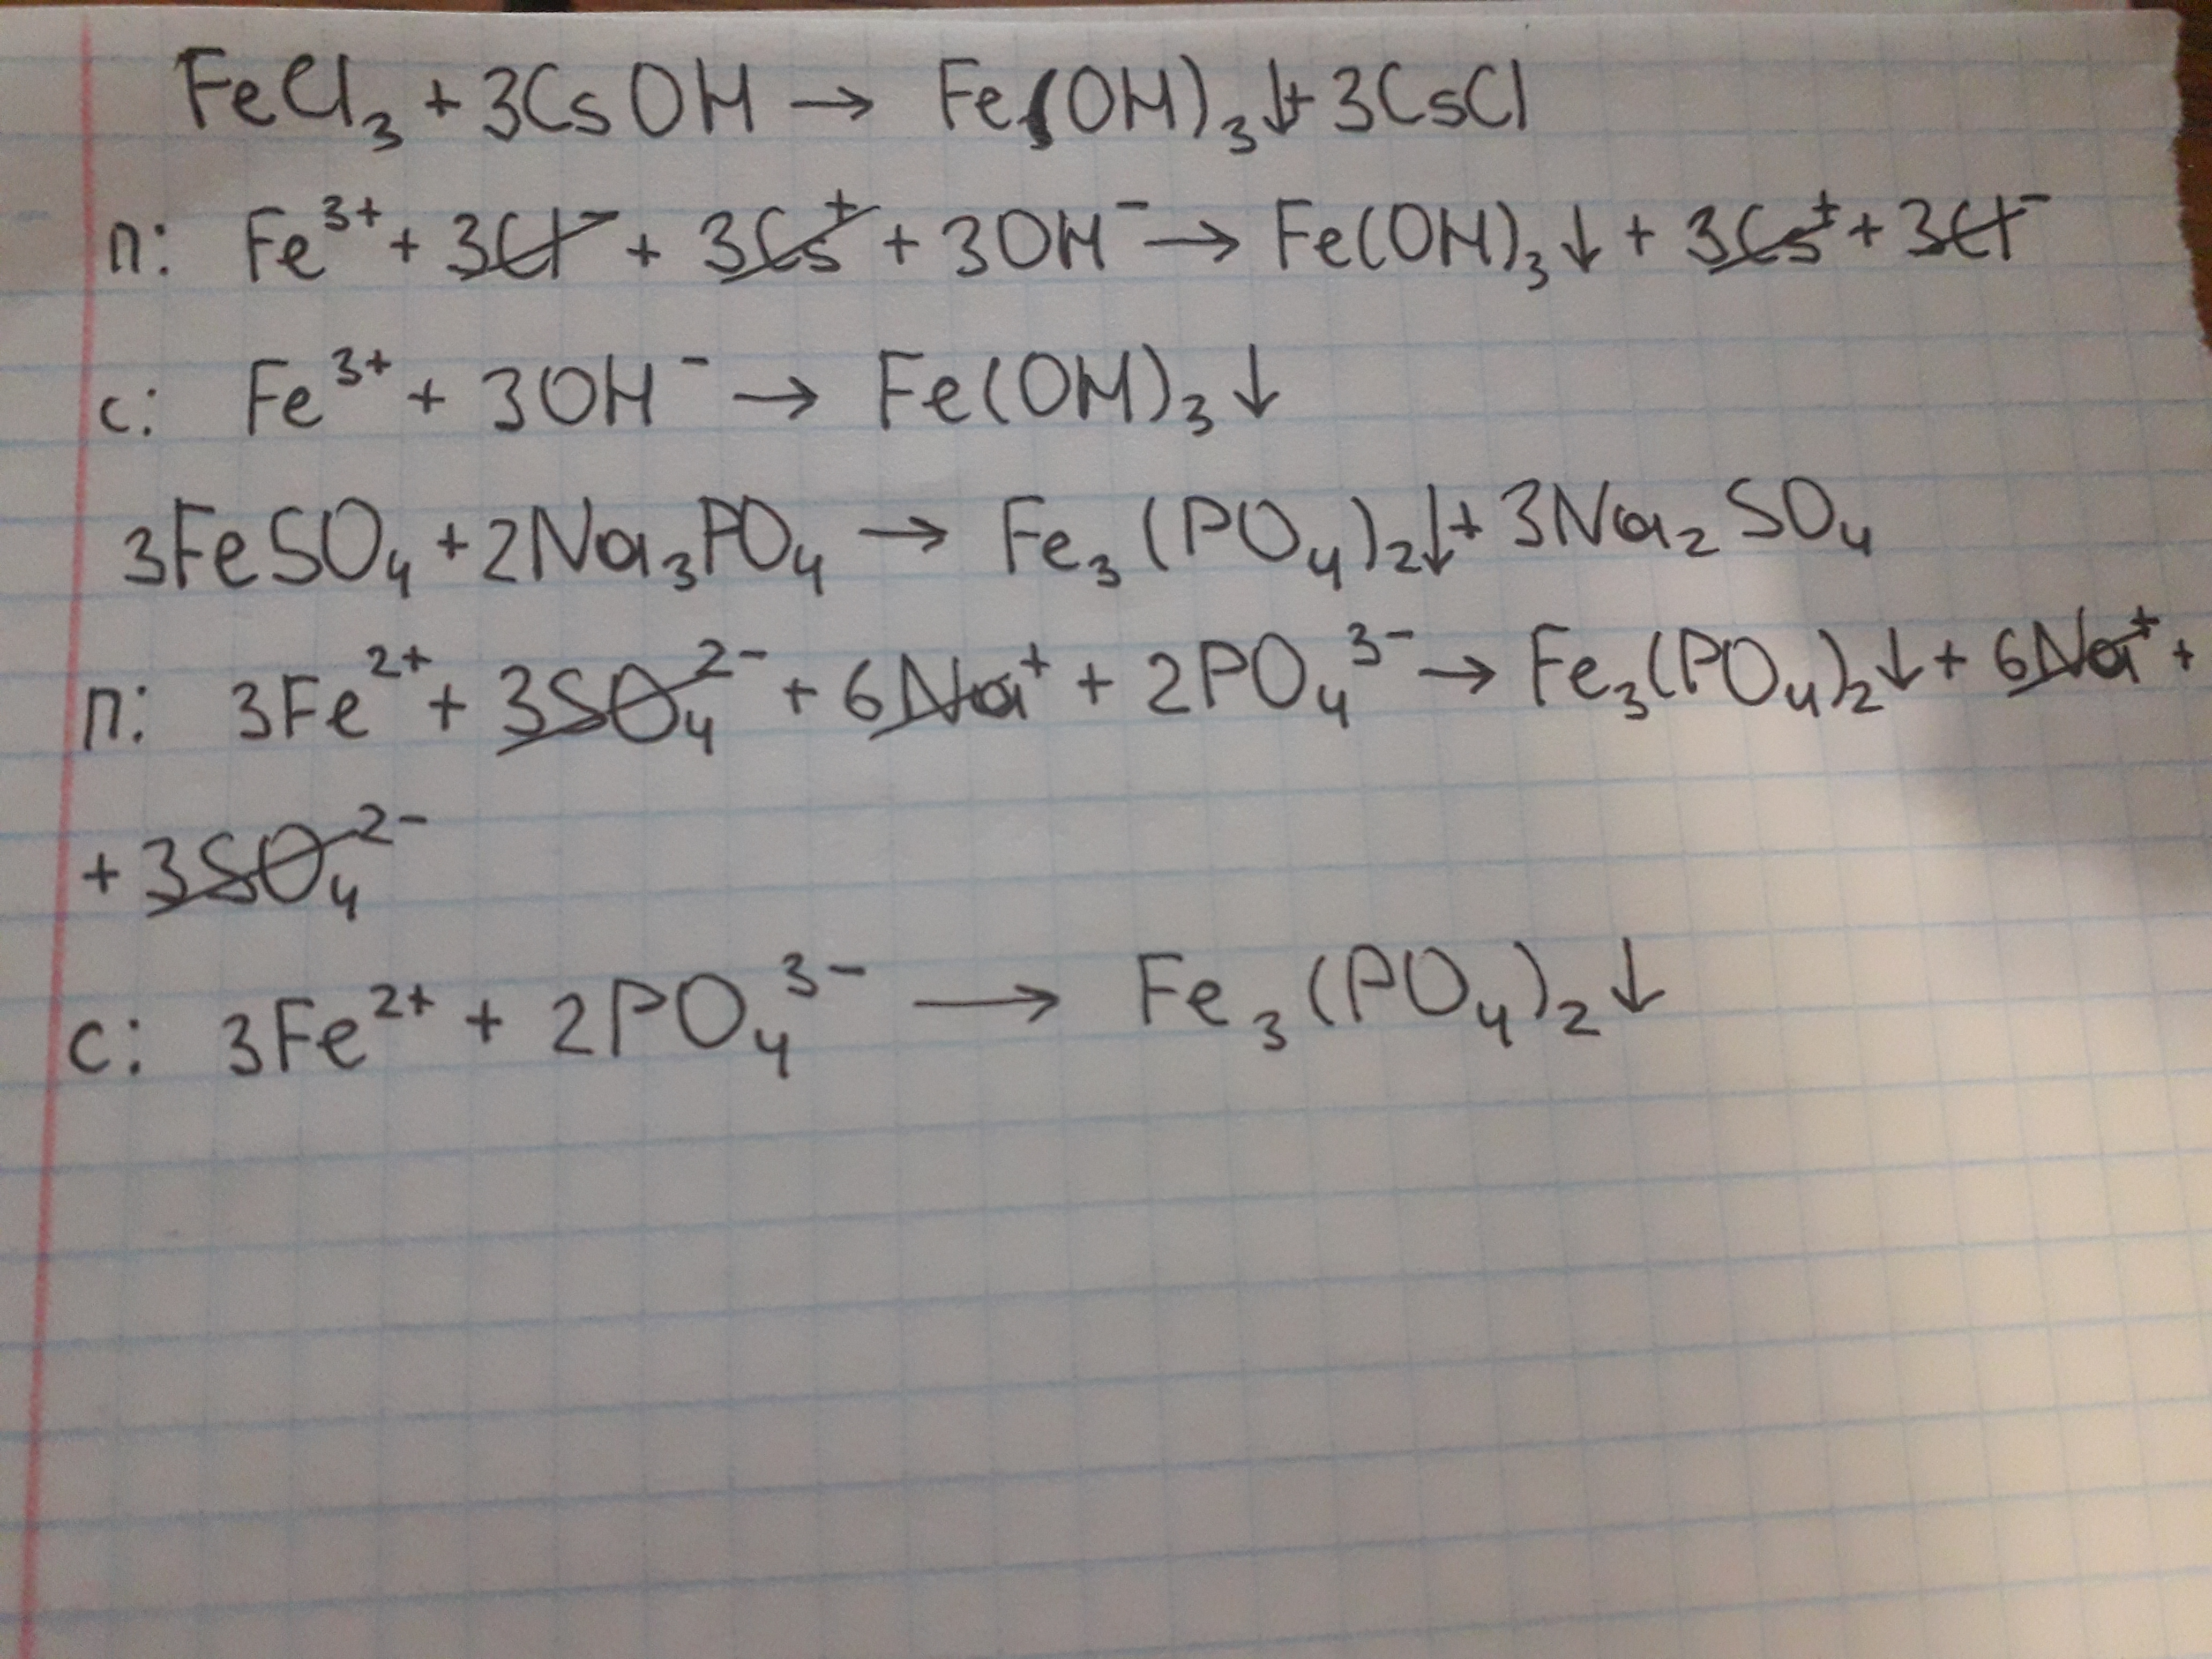 FeCl₃ + 3CsOH → Fe(OH)₃↓ + 3CsCl
п: Fe³⁺ + 3Cl⁻ + 3Cs⁺ + 3OH⁻ → Fe(OH)₃↓ + 3Cs⁺ + 3Cl⁻
с: Fe³⁺ + 3OH⁻ → Fe(OH)₃↓
3FeSO₄ + 2Na₃PO₄ → Fe₃(PO₄)₂↓ + 3Na₂SO₄
п: 3Fe²⁺ + 3SO₄²⁻ + 6Na⁺ + 2PO₄³⁻ → Fe₃(PO₄)₂↓ + 6Na⁺ +
+ 3SO₄²⁻
с: 3Fe²⁺ + 2PO₄³⁻ → Fe₃(PO₄)₂↓